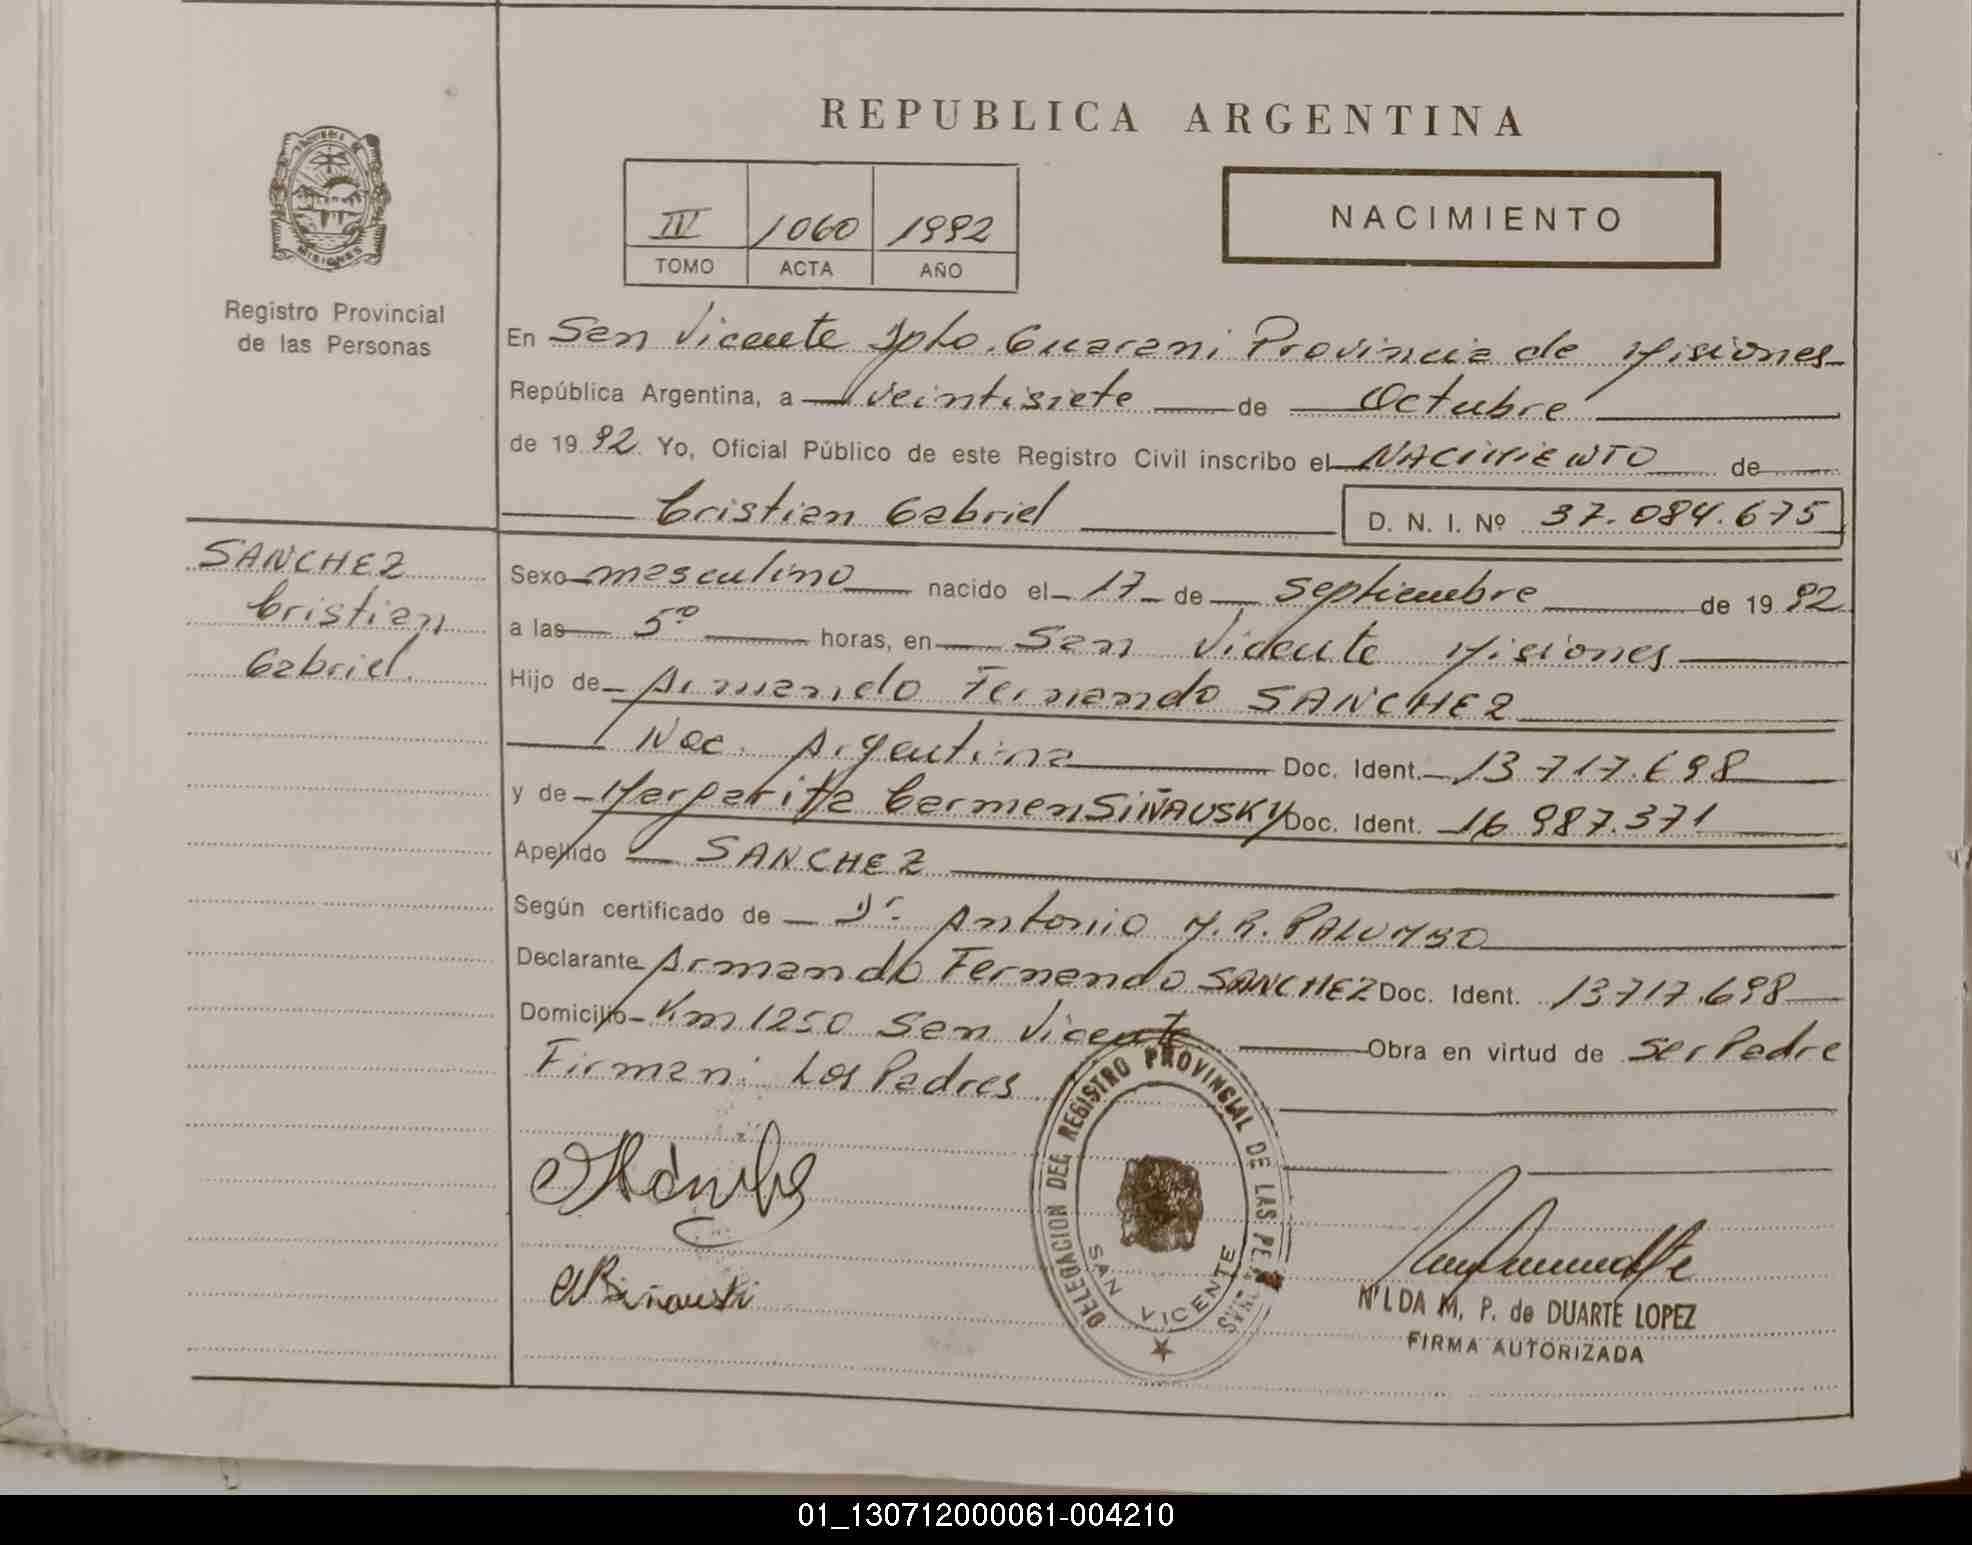 REPUBLICA ARGENTINA
NACIMIENTO
III 1060 1992
TOMO ACTA AÑO
MISIONES
Registro Provincial
de las Personas
En San Vicente Dpto. Guarani Provincia de Misiones
República Argentina, a veintisiete de Octubre
de 1992 Yo, Oficial Público de este Registro Civil inscribo el NACIMIENTO de
Cristian Gabriel D. N. I. Nº 37.084.675
SANCHEZ
Cristian
Gabriel.
Sexo masculino nacido el 17 de Septiembre de 1992
a las 5º horas, en San Vicente Misiones
Hijo de Armando Fernando SANCHEZ
Nac. Argentina Doc. Ident. 13.717.698
y de Margarita Carmen SIÑAUSKY Doc. Ident. 16.987.371
Apellido SANCHEZ
Según certificado de Dr. Antonio M.R. PALUMBO
Declarante Armando Fernando SANCHEZ Doc. Ident. 13.717.698
Domicilio Km 1250 San Vicente Obra en virtud de ser Padre
Firman: Los Padres
DELEGACION DEL REGISTRO PROVINCIAL DE LAS PERSONAS
SAN VICENTE
NILDA M. P. de DUARTE LOPEZ
FIRMA AUTORIZADA
01_130712000061-004210